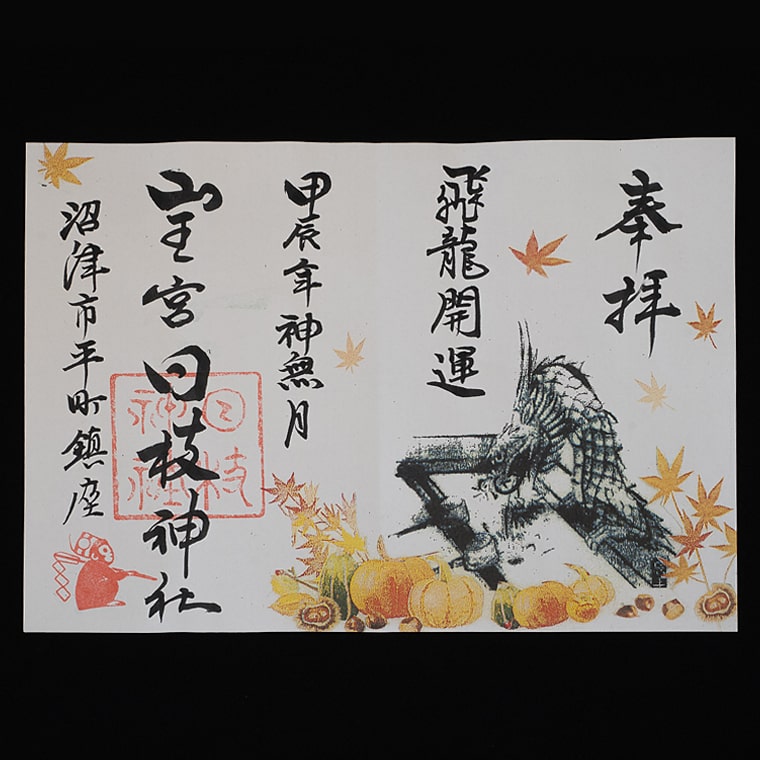 奉拝
飛龍開運
甲辰年神無月
山王宮日枝神社
沼津市平町鎮座
日枝
神社